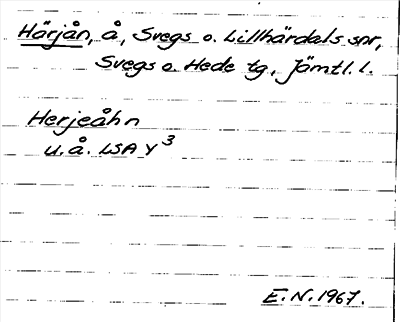 Härjån, å, Svegs o. Lillhärdals snr,
Svegs o. Hede tg, Jämtl. l.
Herjeåhn
u.å. LSA Y³
E.N. 1967.